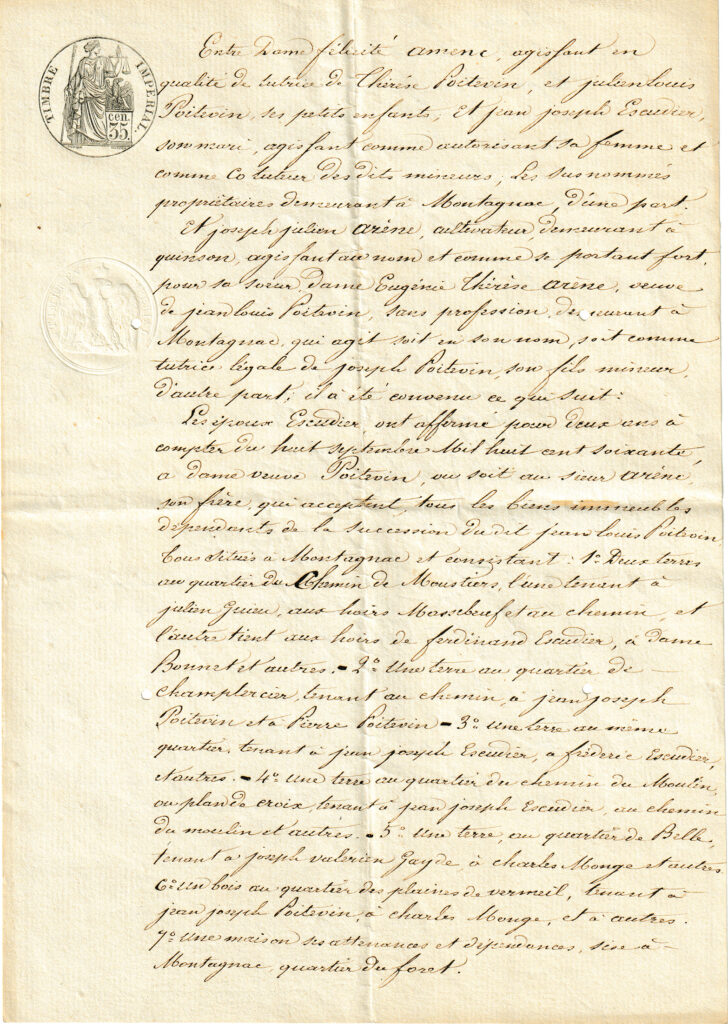 TIMBRE IMPERIAL.
cen. 35.
Entre Dame félicité amenc, agissant en
qualité de tutrice de Thérèse Poitevin, et julien louis
Poitevin, ses petits enfants, Et jean joseph Escudier,
son mari, agissant comme autorisant sa femme et
comme Co tuteur des dits mineurs, Les susnommés
propriétaires demeurant à Montagnac, d'une part.
Et joseph julien arène, cultivateur demeurant à
quinson, agissant au nom et comme se portant fort,
pour sa soeur, dame Eugénie Thérèse arène, veuve
de jean louis Poitevin, sans profession, demeurant à
Montagnac, qui agit soit en son nom, soit comme
tutrice légale de joseph Poitevin, son fils mineur,
d'autre part; il a été convenu ce qui suit:
Les époux Escudier, ont affermé pour deux ans à
compter du huit septembre Mil huit cent soixante,
a dame veuve Poitevin, ou soit au sieur arène,
son frère, qui acceptent, tous les biens immeubles
dépendants de la succession du dit jean louis Poitevin
tous situés à Montagnac et consistant: 1º Deux terres
au quartier du Chemin de Moustiers, l'une tenant à
julien Guieu, aux hoirs Massebeuf et au chemin, et
l'autre tient aux hoirs de ferdinand Escudier, à dame
Bonnet et autres. - 2º Une terre au quartier de -
champlercier, tenant au chemin, à jean joseph
Poitevin et à Pierre Poitevin - 3º Une terre au même
quartier, tenant à jean joseph Escudier, à fréderic Escudier,
et autres. - 4º Une terre au quartier du chemin du Moulin,
ou plan de croix, tenant à jean joseph Escudier, au chemin
du moulin et autres. - 5º Une terre, au quartier de Belle,
tenant à joseph valérien Gayde, à charles Monge et autres.
6º Un bois au quartier des plaines de vermeil, tenant à
jean joseph Poitevin, à charles Monge, et à autres.
7º Une maison ses attenances et dépendances, sise à -
Montagnac, quartier du foret.